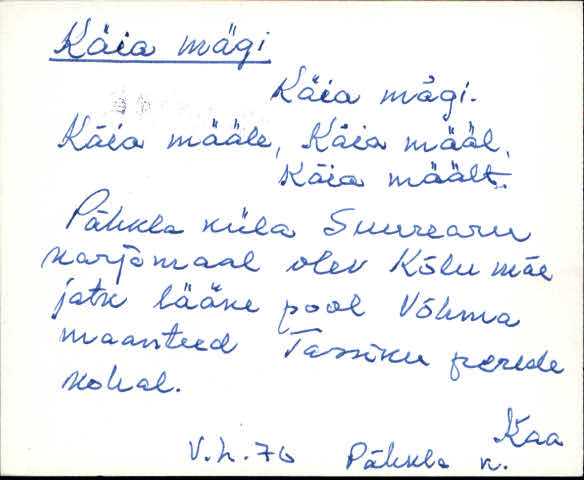 Käia mägi
Käia mägi.
Käia määle, Käia määl,
Käia mäält.
Pähkla küla Suurearu
karjamaal olev Kõlu mäe
jätk lääne pool Võhma
maanteed Tassiku perede
kohal.
Kaa
V.L.76 Pähkla k.